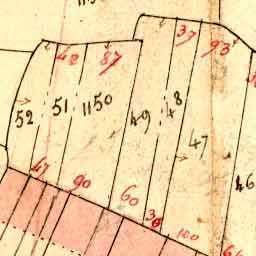 37
48
87
93
52
51
1150
49
48
47
46
47
90
60
36
100